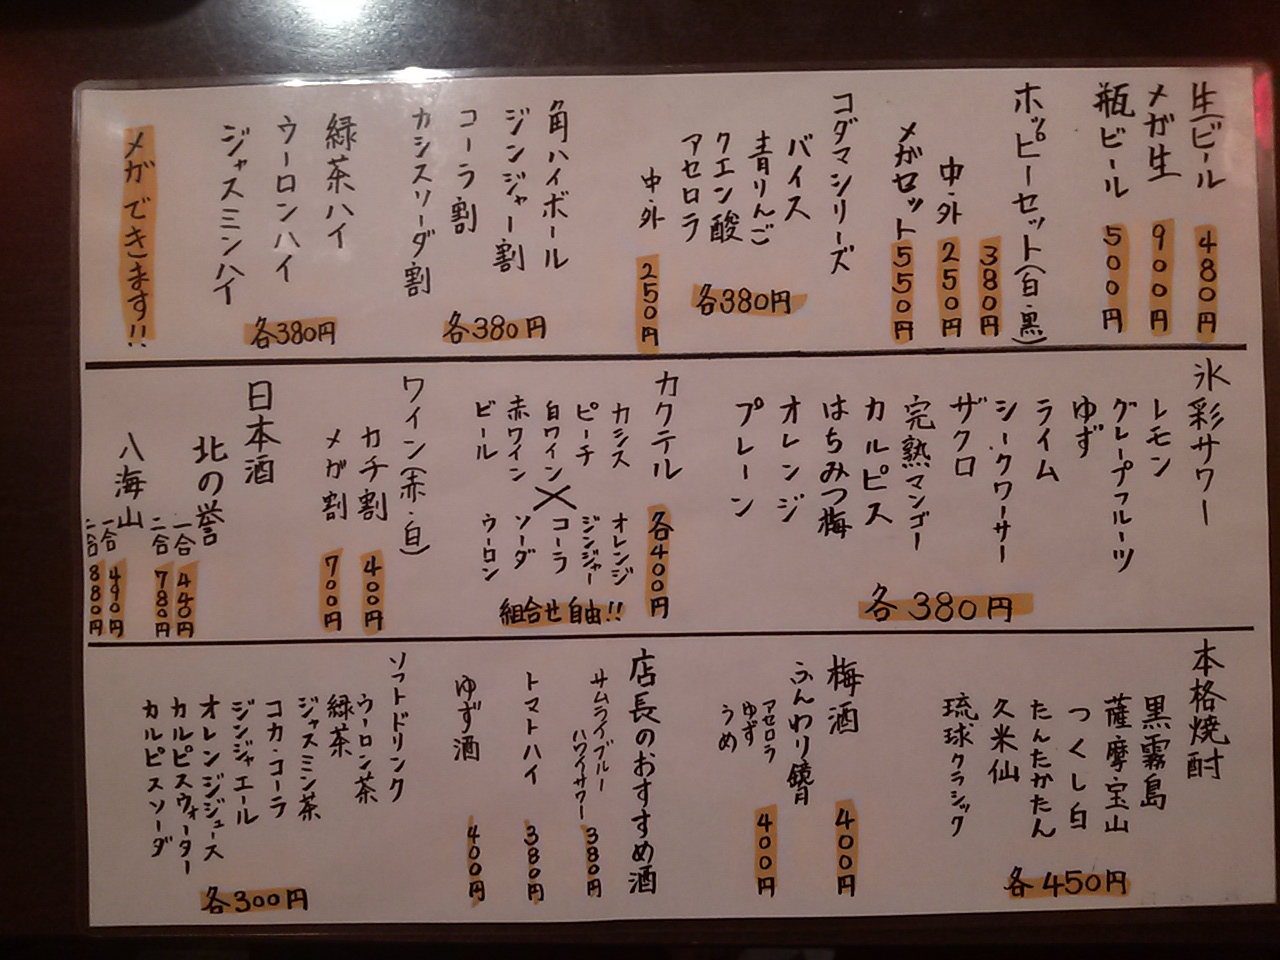 生ビール 480円
メガ生 900円
瓶ビール 500円
ホッピーセット(白・黒) 380円
中・外 250円
メガセット 550円
コダマシリーズ
バイス
青りんご
クエン酸
アセロラ
各380円
中・外 250円
角ハイボール
ジンジャー割
コーラ割
カシスソーダ割
各380円
緑茶ハイ
ウーロンハイ
ジャスミンハイ
各380円
メガできます!!
氷彩サワー
レモン
グレープフルーツ
ゆず
ライム
シークワーサー
ザクロ
完熟マンゴー
カルピス
はちみつ梅
オレンジ
プレーン
各380円
カクテル 各400円
カシス
ピーチ
白ワイン
赤ワイン
ビール
×
オレンジ
ジンジャー
コーラ
ソーダ
ウーロン
組合せ自由!!
ワイン(赤・白)
カチ割 400円
メガ割 700円
日本酒
北の誉
一合 440円
二合 780円
八海山
一合 490円
二合 880円
本格焼酎
黒霧島
薩摩宝山
つくし白
たんたかたん
久米仙
琉球クラシック
各450円
梅酒 400円
ふんわり鏡月
アセロラ
ゆず
うめ
400円
店長のおすすめ酒
サムライブルー
ハワイサワー 380円
トマトハイ 380円
ゆず酒 400円
ソフトドリンク
ウーロン茶
緑茶
ジャスミン茶
コカ・コーラ
ジンジャエール
オレンジジュース
カルピスウォーター
カルピスソーダ
各300円